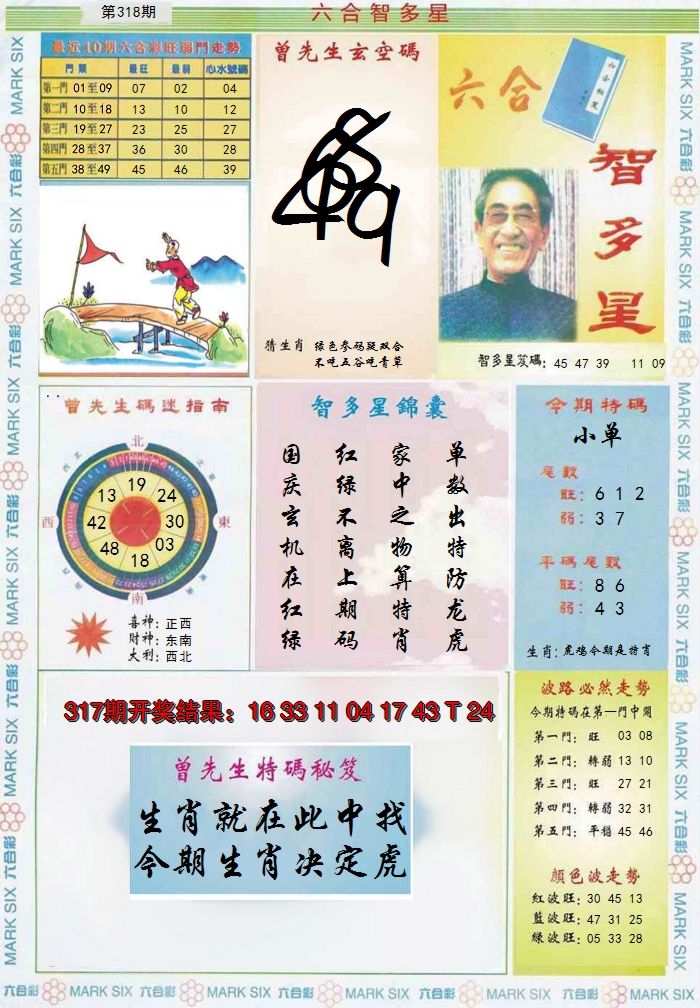 第318期
六合智多星
最近10期六合彩旺弱門走勢
門票 最旺 最弱 心水號碼
第一門 01至09 07 02 04
第二門 10至18 13 10 12
第三門 19至27 23 25 27
第四門 28至37 36 30 28
第五門 38至49 45 46 39
曾先生玄空碼
猜生肖 绿色参码疑双合
不吃五谷吃青草
六合
六合秘笈
智多星
智多星笈碼: 45 47 39 11 09
曾先生碼迷指南
北
西
東
南
19
13
24
42
30
48
03
18
喜神: 正西
財神: 东南
大利: 西北
智多星錦囊
国庆玄机在红绿
红绿不离上期码
家中之物算特肖
单数出特防龙虎
今期特碼
小单
尾數
旺: 6 1 2
弱: 3 7
平碼尾數
旺: 8 6
弱: 4 3
生肖: 虎鸡今期是特肖
317期开奖结果: 16 33 11 04 17 43 T 24
曾先生特碼秘笈
生肖就在此中找
今期生肖决定虎
波路必然走勢
今期特码在第一门中開
第一門: 旺 03 08
第二門: 轉弱 13 10
第三門: 旺 27 21
第四門: 轉弱 32 31
第五門: 平穩 45 46
顔色波走勢
紅波旺: 30 45 13
藍波旺: 47 31 25
綠波旺: 05 33 28
MARK SIX 六合彩